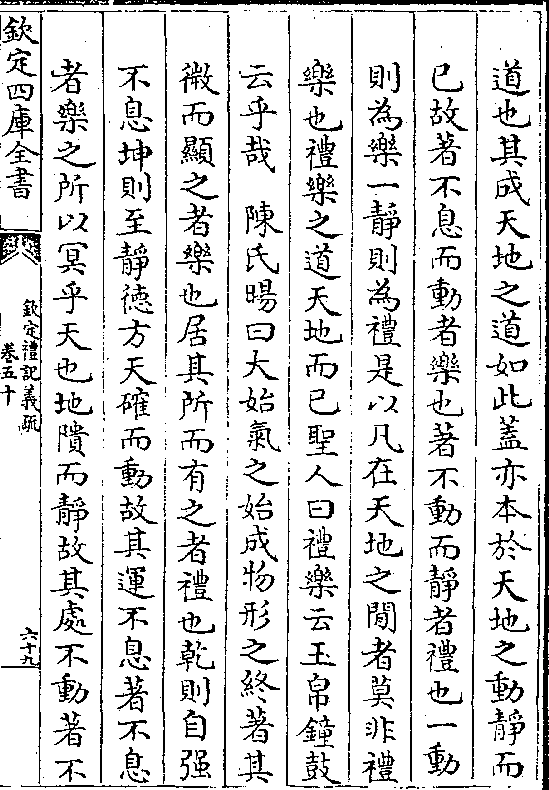 道也其成天地之道如此蓋亦本於天地之動靜而
已故著不息而動者樂也著不動而靜者禮也一動
則為樂一靜則為禮是以凡在天地之閒者莫非禮
樂也禮樂之道天地而已聖人曰禮樂云玉帛鐘鼓
云乎哉　陳氏暘曰大始氣之始成物形之終著其
微而顯之者樂也居其所而有之者禮也乾則自强
不息坤則至靜德方天確而動故其運不息著不息
者樂之所以冥乎天也地隤而靜故其處不動著不
欽定四庫全書
欽定禮記義疏
卷五十
六十九